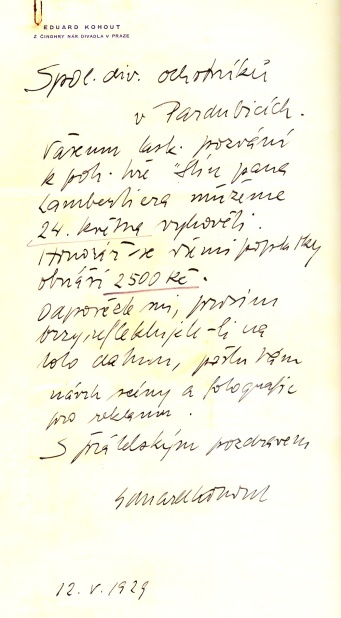 EDUARD KOHOUT
Z ČINOHRY NÁR. DIVADLA V PRAZE
Spol. div. ochotníků
v Pardubicích.
Vašemu lask. pozvání
k poh. hře "Stín pana
Lambertiera můžeme
24. května vyhověti.
Honorář se všemi poplatky
obnáší 2500 Kč.
Odpovězte mi, prosím
brzy, reflektujete-li na
toto datum, pošlu Vám
návrh scény a fotografie
pro reklamu.
S přátelským pozdravem
Eduard Kohout
12. V. 1929